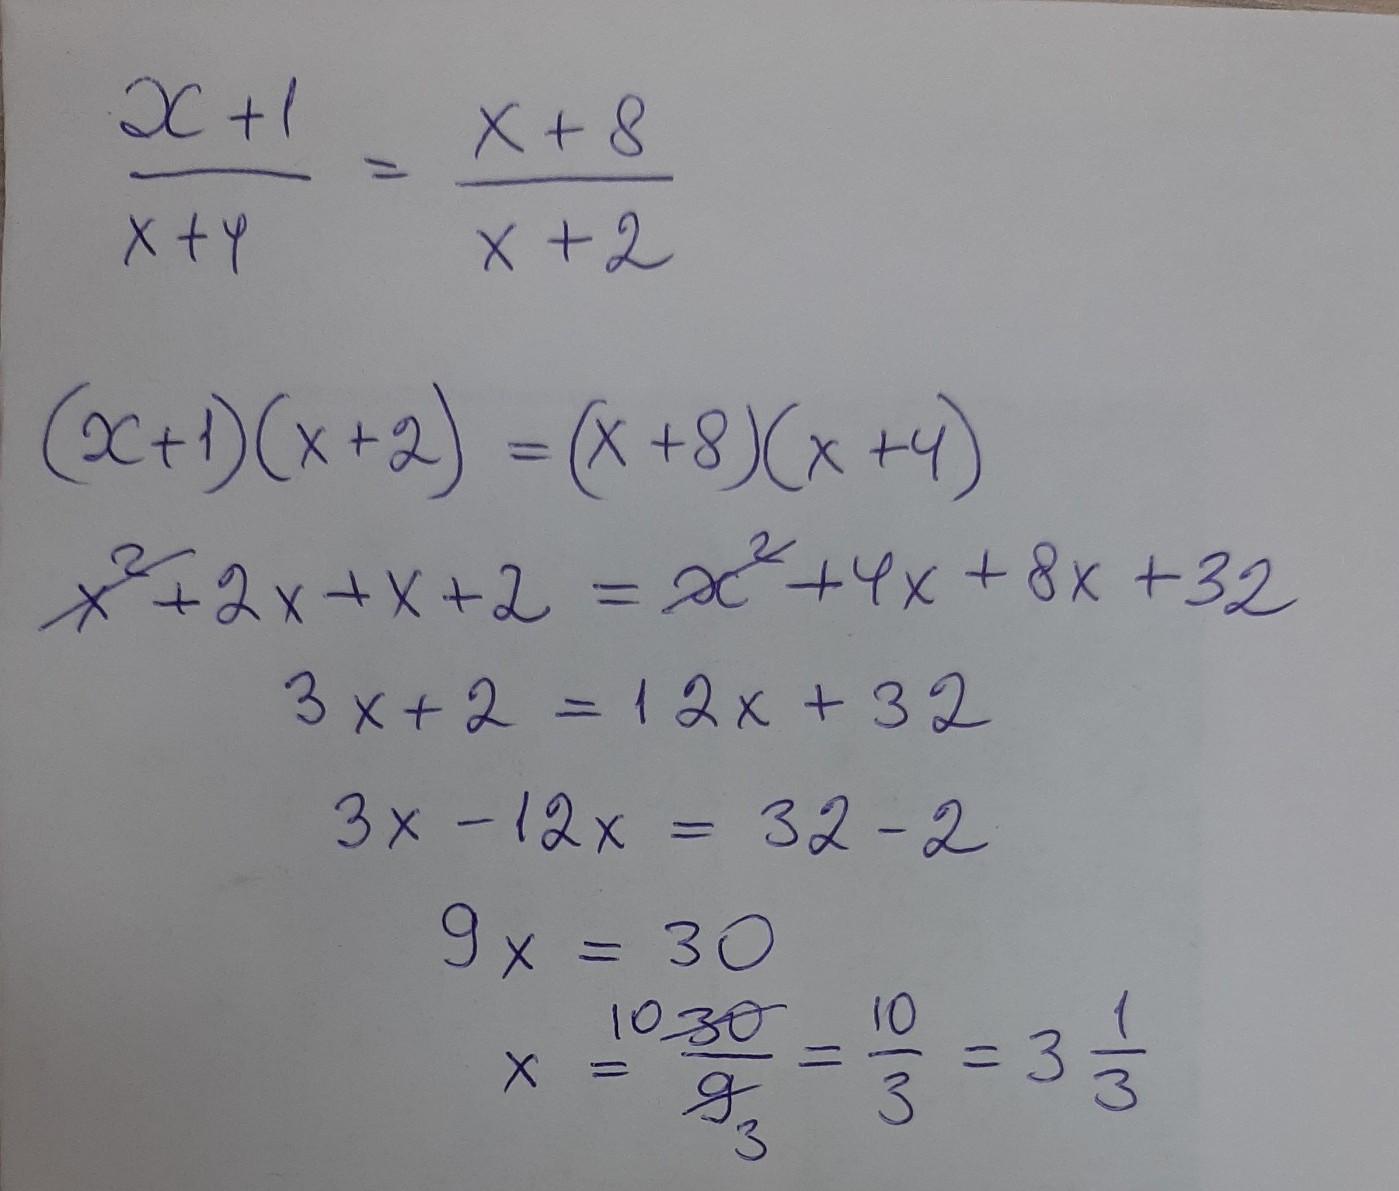 x+1/x+4 = x+8/x+2
(x+1)(x+2) = (x+8)(x+4)
x²+2x+x+2 = x²+4x+8x+32
3x+2 = 12x+32
3x-12x = 32-2
9x = 30
x = 10 30/9 3 = 10/3 = 3 1/3